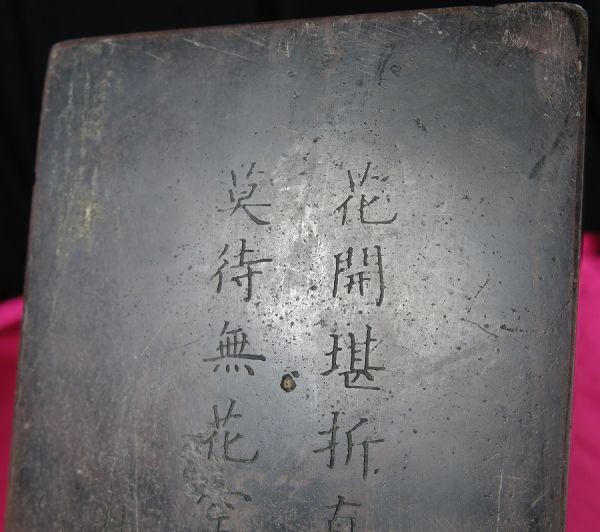 花開堪折直
莫待無花空